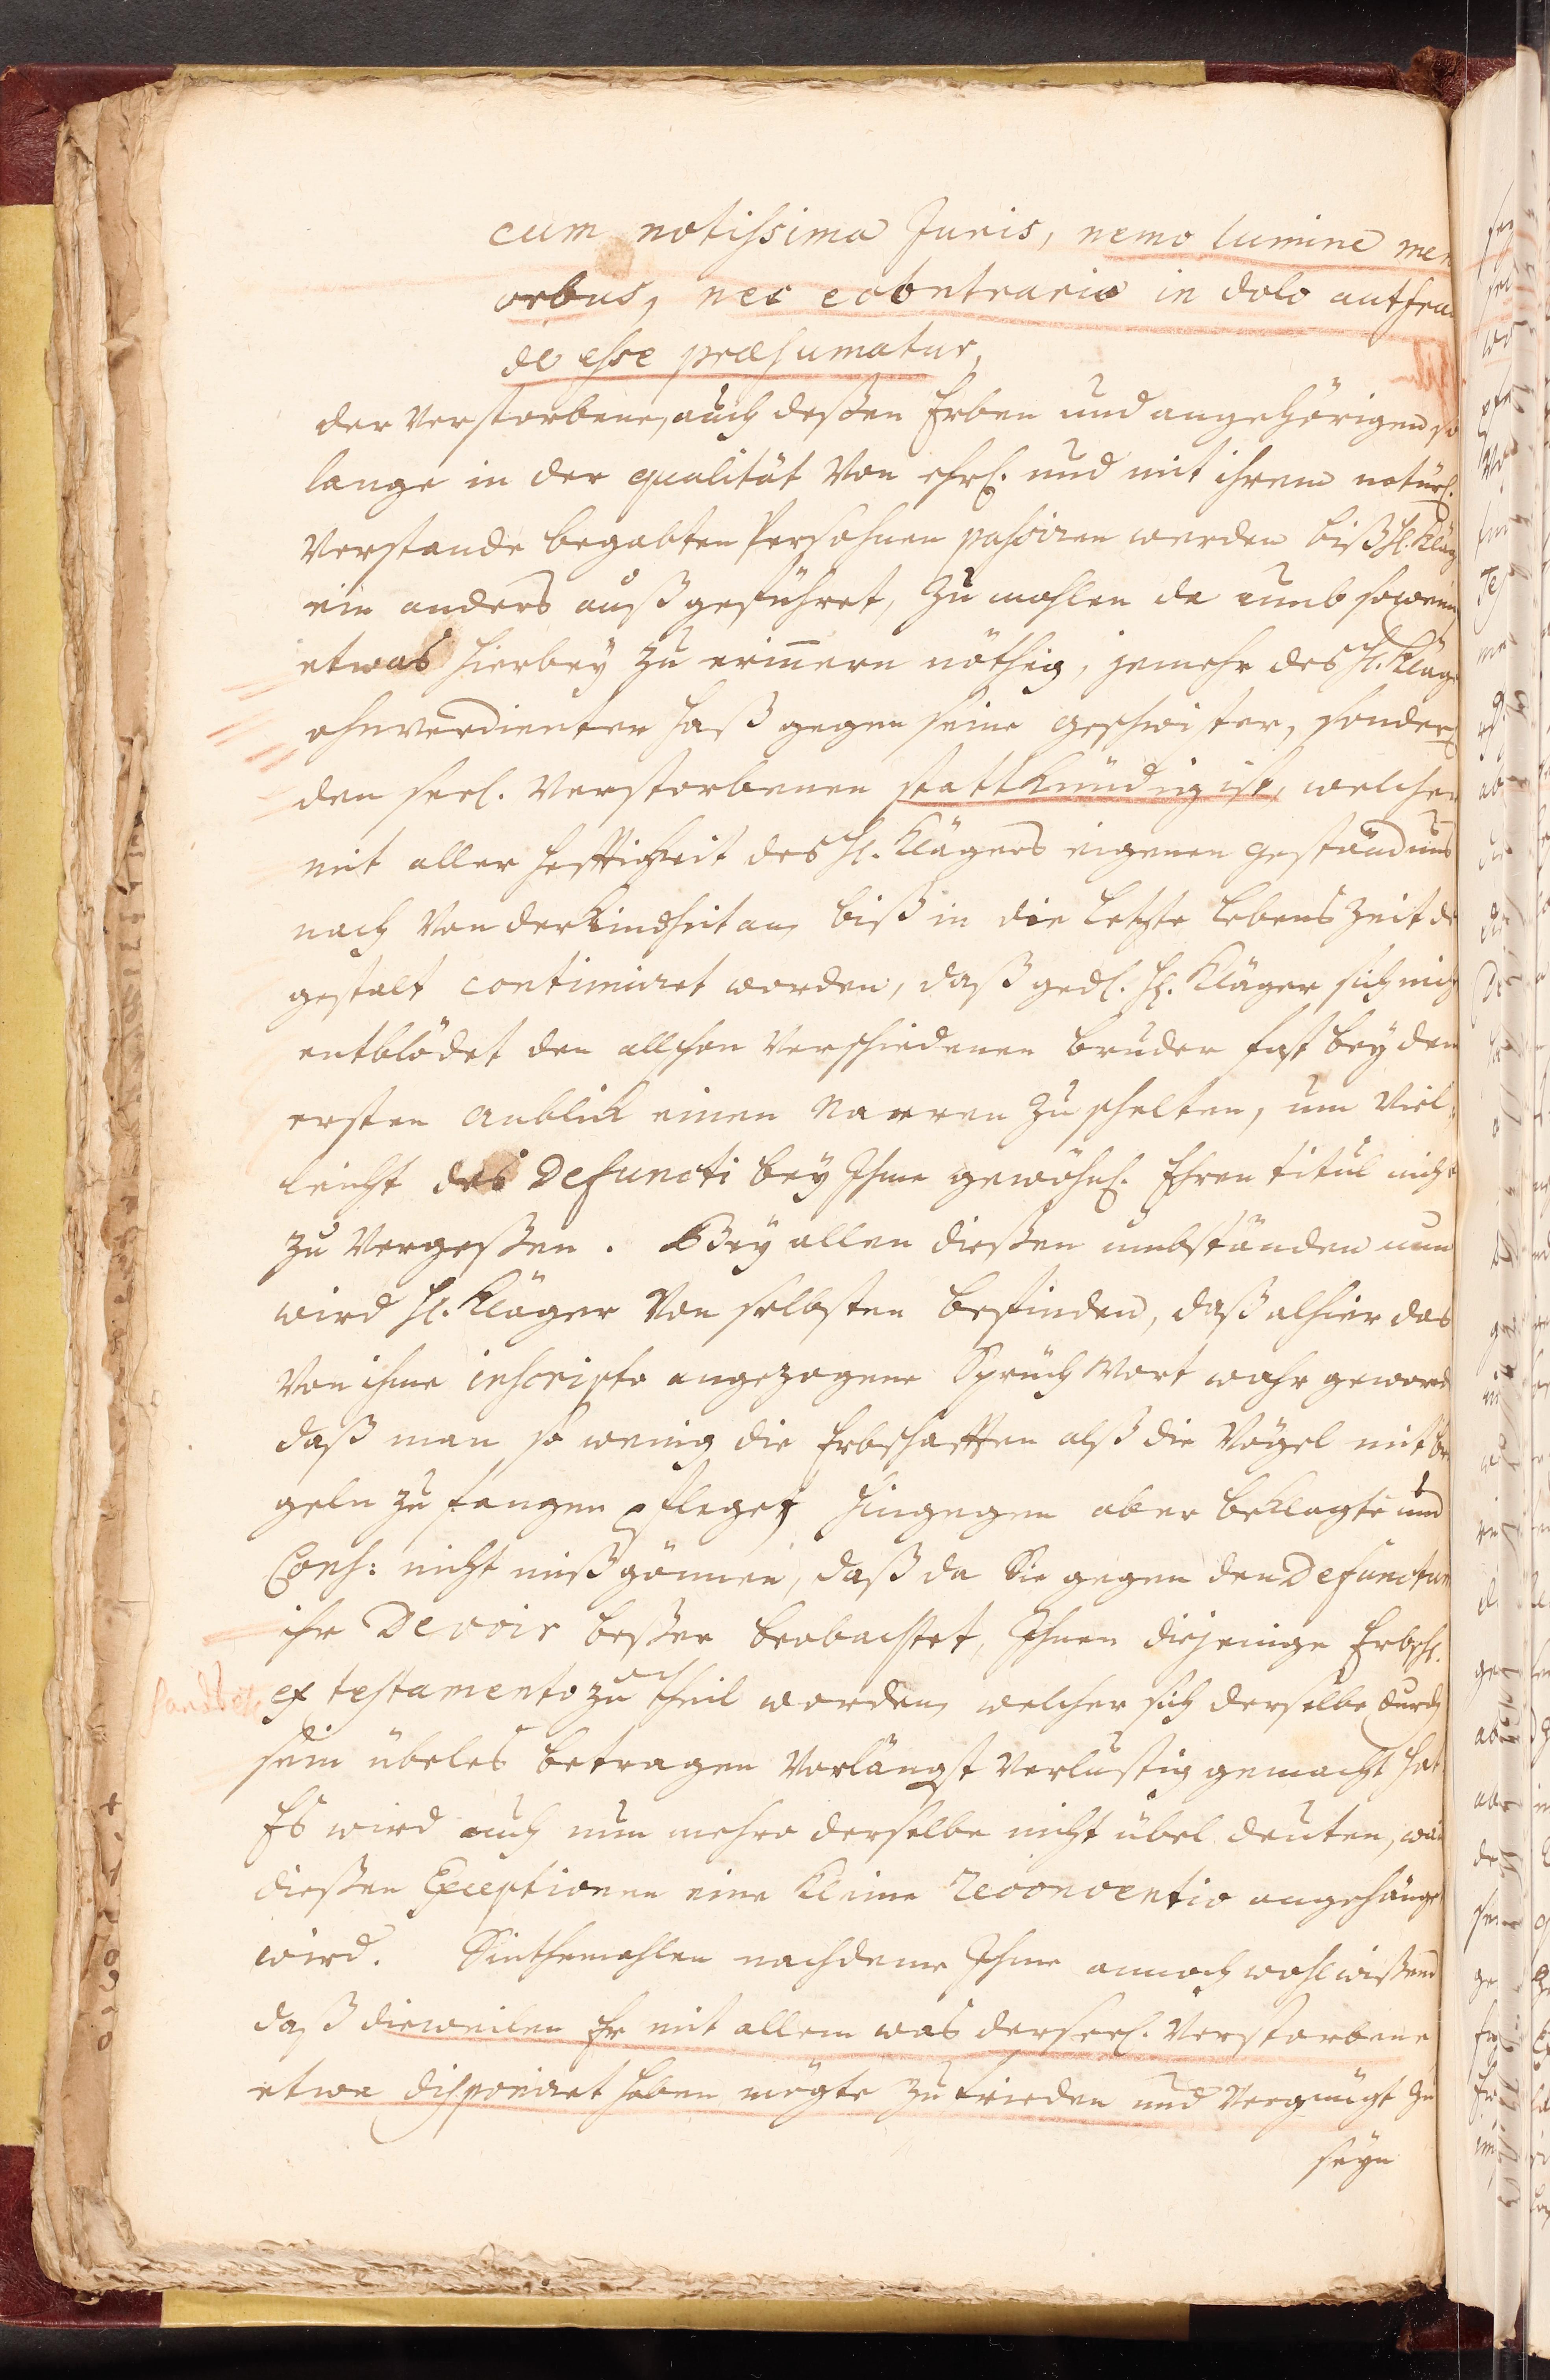 cum notissima Juris, nemo lumine men
orbus, nec econtrario in dolo aut frau
de esse præsumatur,
der Verstorbene, auch deßen Erben und angehörigen so
lange in der qualität von ehrl. und mit ihrem natürl.
Verstande begabten Persohnen passiren werden biß H. Kläg
ein anders außgeführet, zumahlen da umb soweni
etwas hierbey zu erinnern nöthig, jemehr des H. Kläge
ohnverdienter Haß gegen seine Geschwister, sonderl
den seel. Verstorbenen stattkündig ist, welcher
mit aller Hefftigkeit des H. Klägers eigenen Geständnus
nach von der Kindheit an, biß in die letzte Lebens Zeit de
gestalt continuiret worden, daß gedl. H. Kläger sich nich
entblödet den allschon Verschiedenen Bruder fast bey dem
ersten Anblick einen Narren zu schelten, um Viel-
leicht des Defuncti bey Ihme gewöhnl. Ehren titul nicht
zu Vergeßen. Bey allen dießen umbständen nun
wird H. Kläger von selbsten befinden, daß alhier das
Von ihme in scripto angezogene Sprüch Wort wahr geword
daß man so wenig die Erbschafften alß die Vögel mit Br
geln zu fangen pfleget, Hingegen aber beklagte und
Cons: nicht mißgönnen, daß da Sie gegen den Defunctum
ihr Devoir beßer beobachtet, Ihnen diejenige Erbsch.
ex testamento zu theil worden, welcher sich derselbe durch
sein übeles betragen Vorlängst Verlustig gemacht hat
Es wird auch nun mehro derselbe nicht übel deuten, wan
dießen Exceptionen eine kleine Reconventio angehänget
wird. Sinthemahlen nachdeme Ihme annoch wohl wißend
daß dieweilen Er mit allem was der seel. Verstorbene
etwa disponiret haben mögte zufrieden und Vergnügt zu
seyn